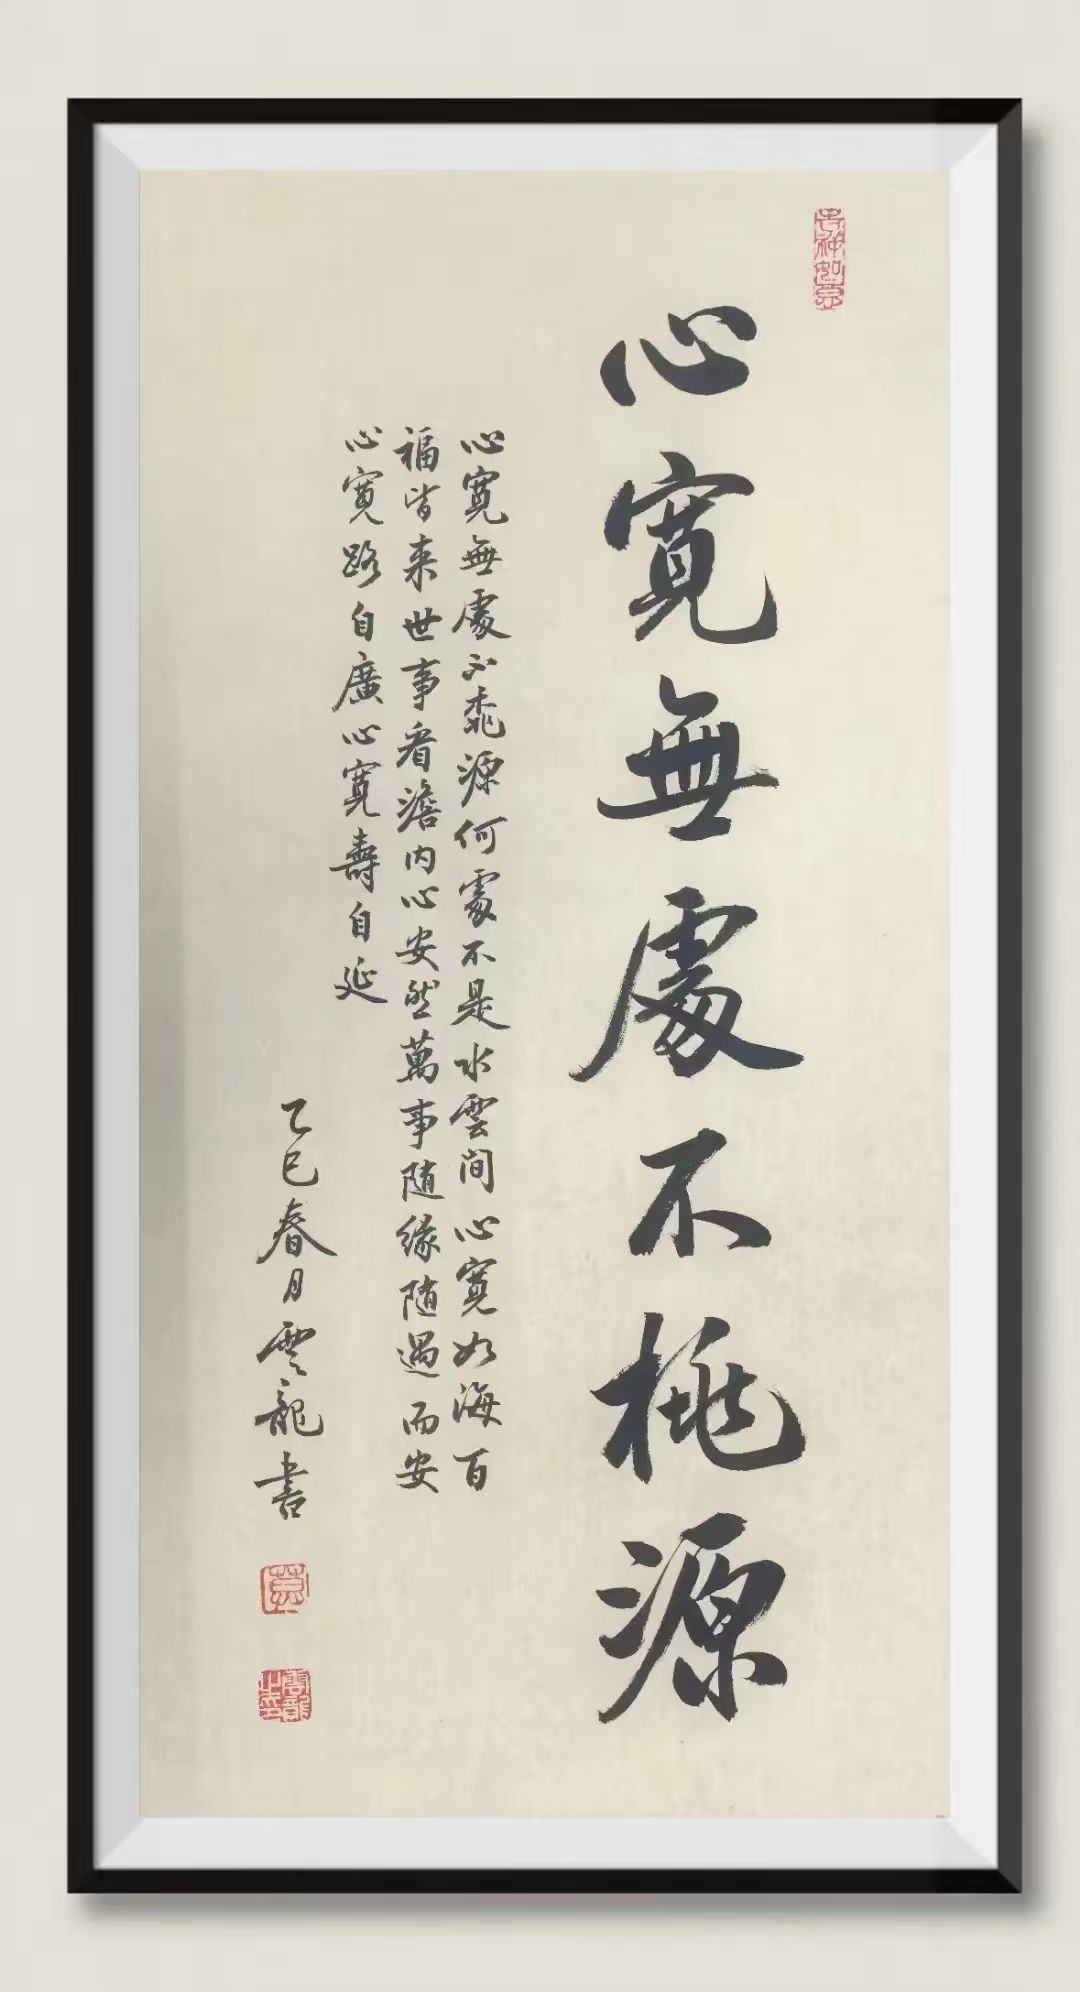 心寬無處不桃源
心寬無處不桃源何處不是水雲间心寬如海百
福皆来世事看澹内心安然萬事随缘随遇而安
心寬路自廣心寬壽自延
乙巳春月雲龍书